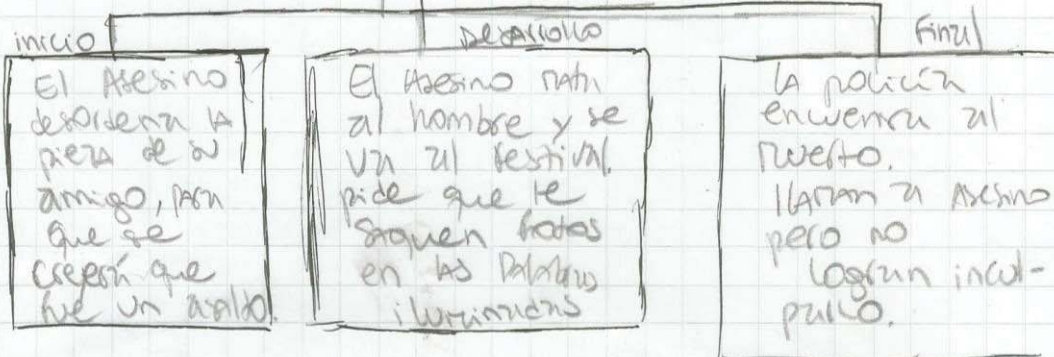 inicio
El Asesino
desordena la
pieza de su
amigo, para
que se
creyera que
fue un asalto.
Desarrollo
El Asesino mata
al hombre y se
va al festival.
pide que le
saquen fotos
en las
iluminadas
Final
La policía
encuentra al
muerto.
llaman a Asesino
pero no
logran incul-
parlo.